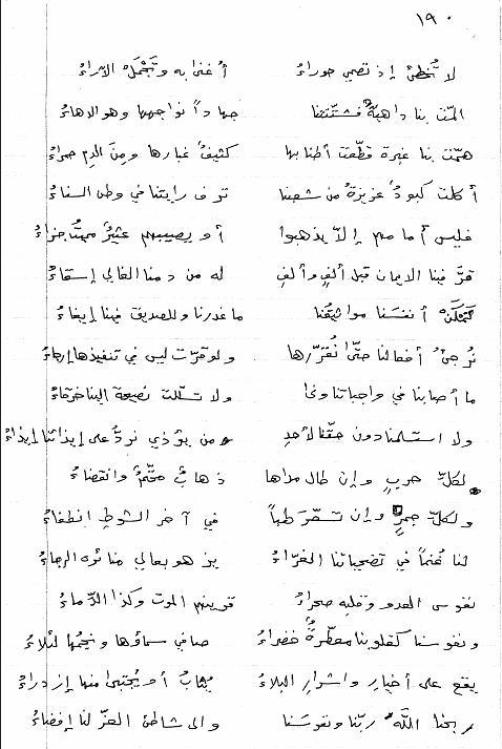 ١٩٠
لا تُخطئ إذ تصمي حوراءُ أغنى به وتَجْمَلُ الآراءُ
المّت بنا داهيةٌ فشتّتتنا جهاداً نواجهها وهو الإهاءُ
همّت بنا غيرة قطّعت أطنابها كثيفٌ غبارها ومِنَ الدم حمراءُ
أكلت كبودٌ عزيزةٌ من شعبنا ترف رايتنا في وطن السناءُ
فليس أمامهم إلّا يذهبوا أو يصيبهم جزاءُ
هزَّ فينا الايمان قبل ألفٍ وألفِ له من دمنا الغالي إستقاءُ
أنفسَنا مواثيقُنا ما غدرنا وللصديق فينا إيفاءُ
نُرجئُ أفعالنا حتّى نُقرّرها ولو قرّت ليس في تنفيذها إرجاءُ
ما أصابنا في واجباتنا ونىً ولا تسلّلت البنا
ولا استسلمنا دون حقّنا لأحدٍ ومن يؤذي نردّ على إيذائنا إيذاءُ
لكلّ حربٍ وإن طال مداها ذهابٌ محتّمٌ وانقضاءُ
ولكلّ جمرٍ وإن تسعّرَ طباً في آخر الشوطِ انطفاءُ
لنا نُغماً في تضحياتنا الغرّاءُ يزهو بعالي منائره الرجاءُ
نفوس العدو وقلبه صحراءُ قرينهم الموت وكذا الدّماءُ
ونفوسنا كقلوبنا معطّرةٌ خضراءُ صافي سماؤها ونجمُها لئلاءُ
يقع على أخيارٍ واشرارٍ البلاءُ يُهابُ أو يُجتبى منها إزدراءُ
يربحنا اللّه ربّنا ونفوسَنا والى شاطئ العزّ لنا إفضاءُ